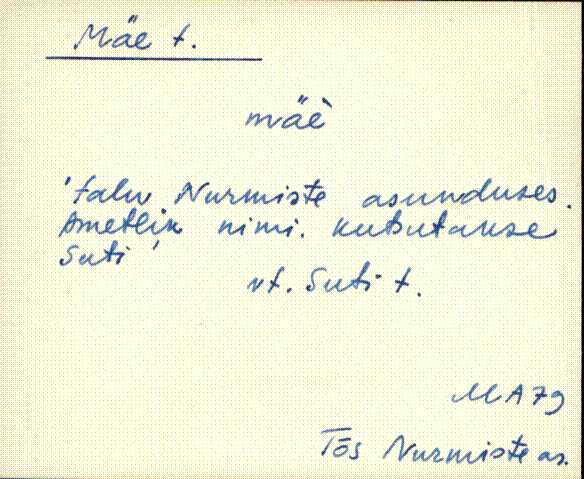 Mäe t.
mäè
'talu Nurmiste asunduses.
Ametlik nimi. kutsutakse
Suti'
vt. Suti t.
MA79
Tõs Nurmiste as.